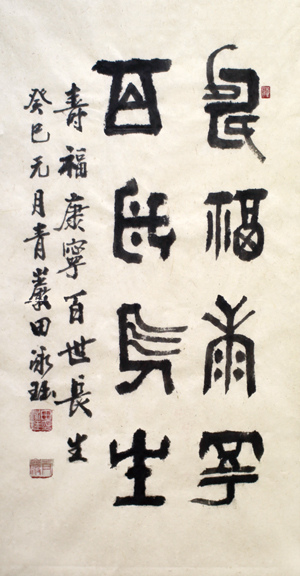 壽福康寧
百世長生
寿福康寧百世長生
癸巳元月青岩田泳珏